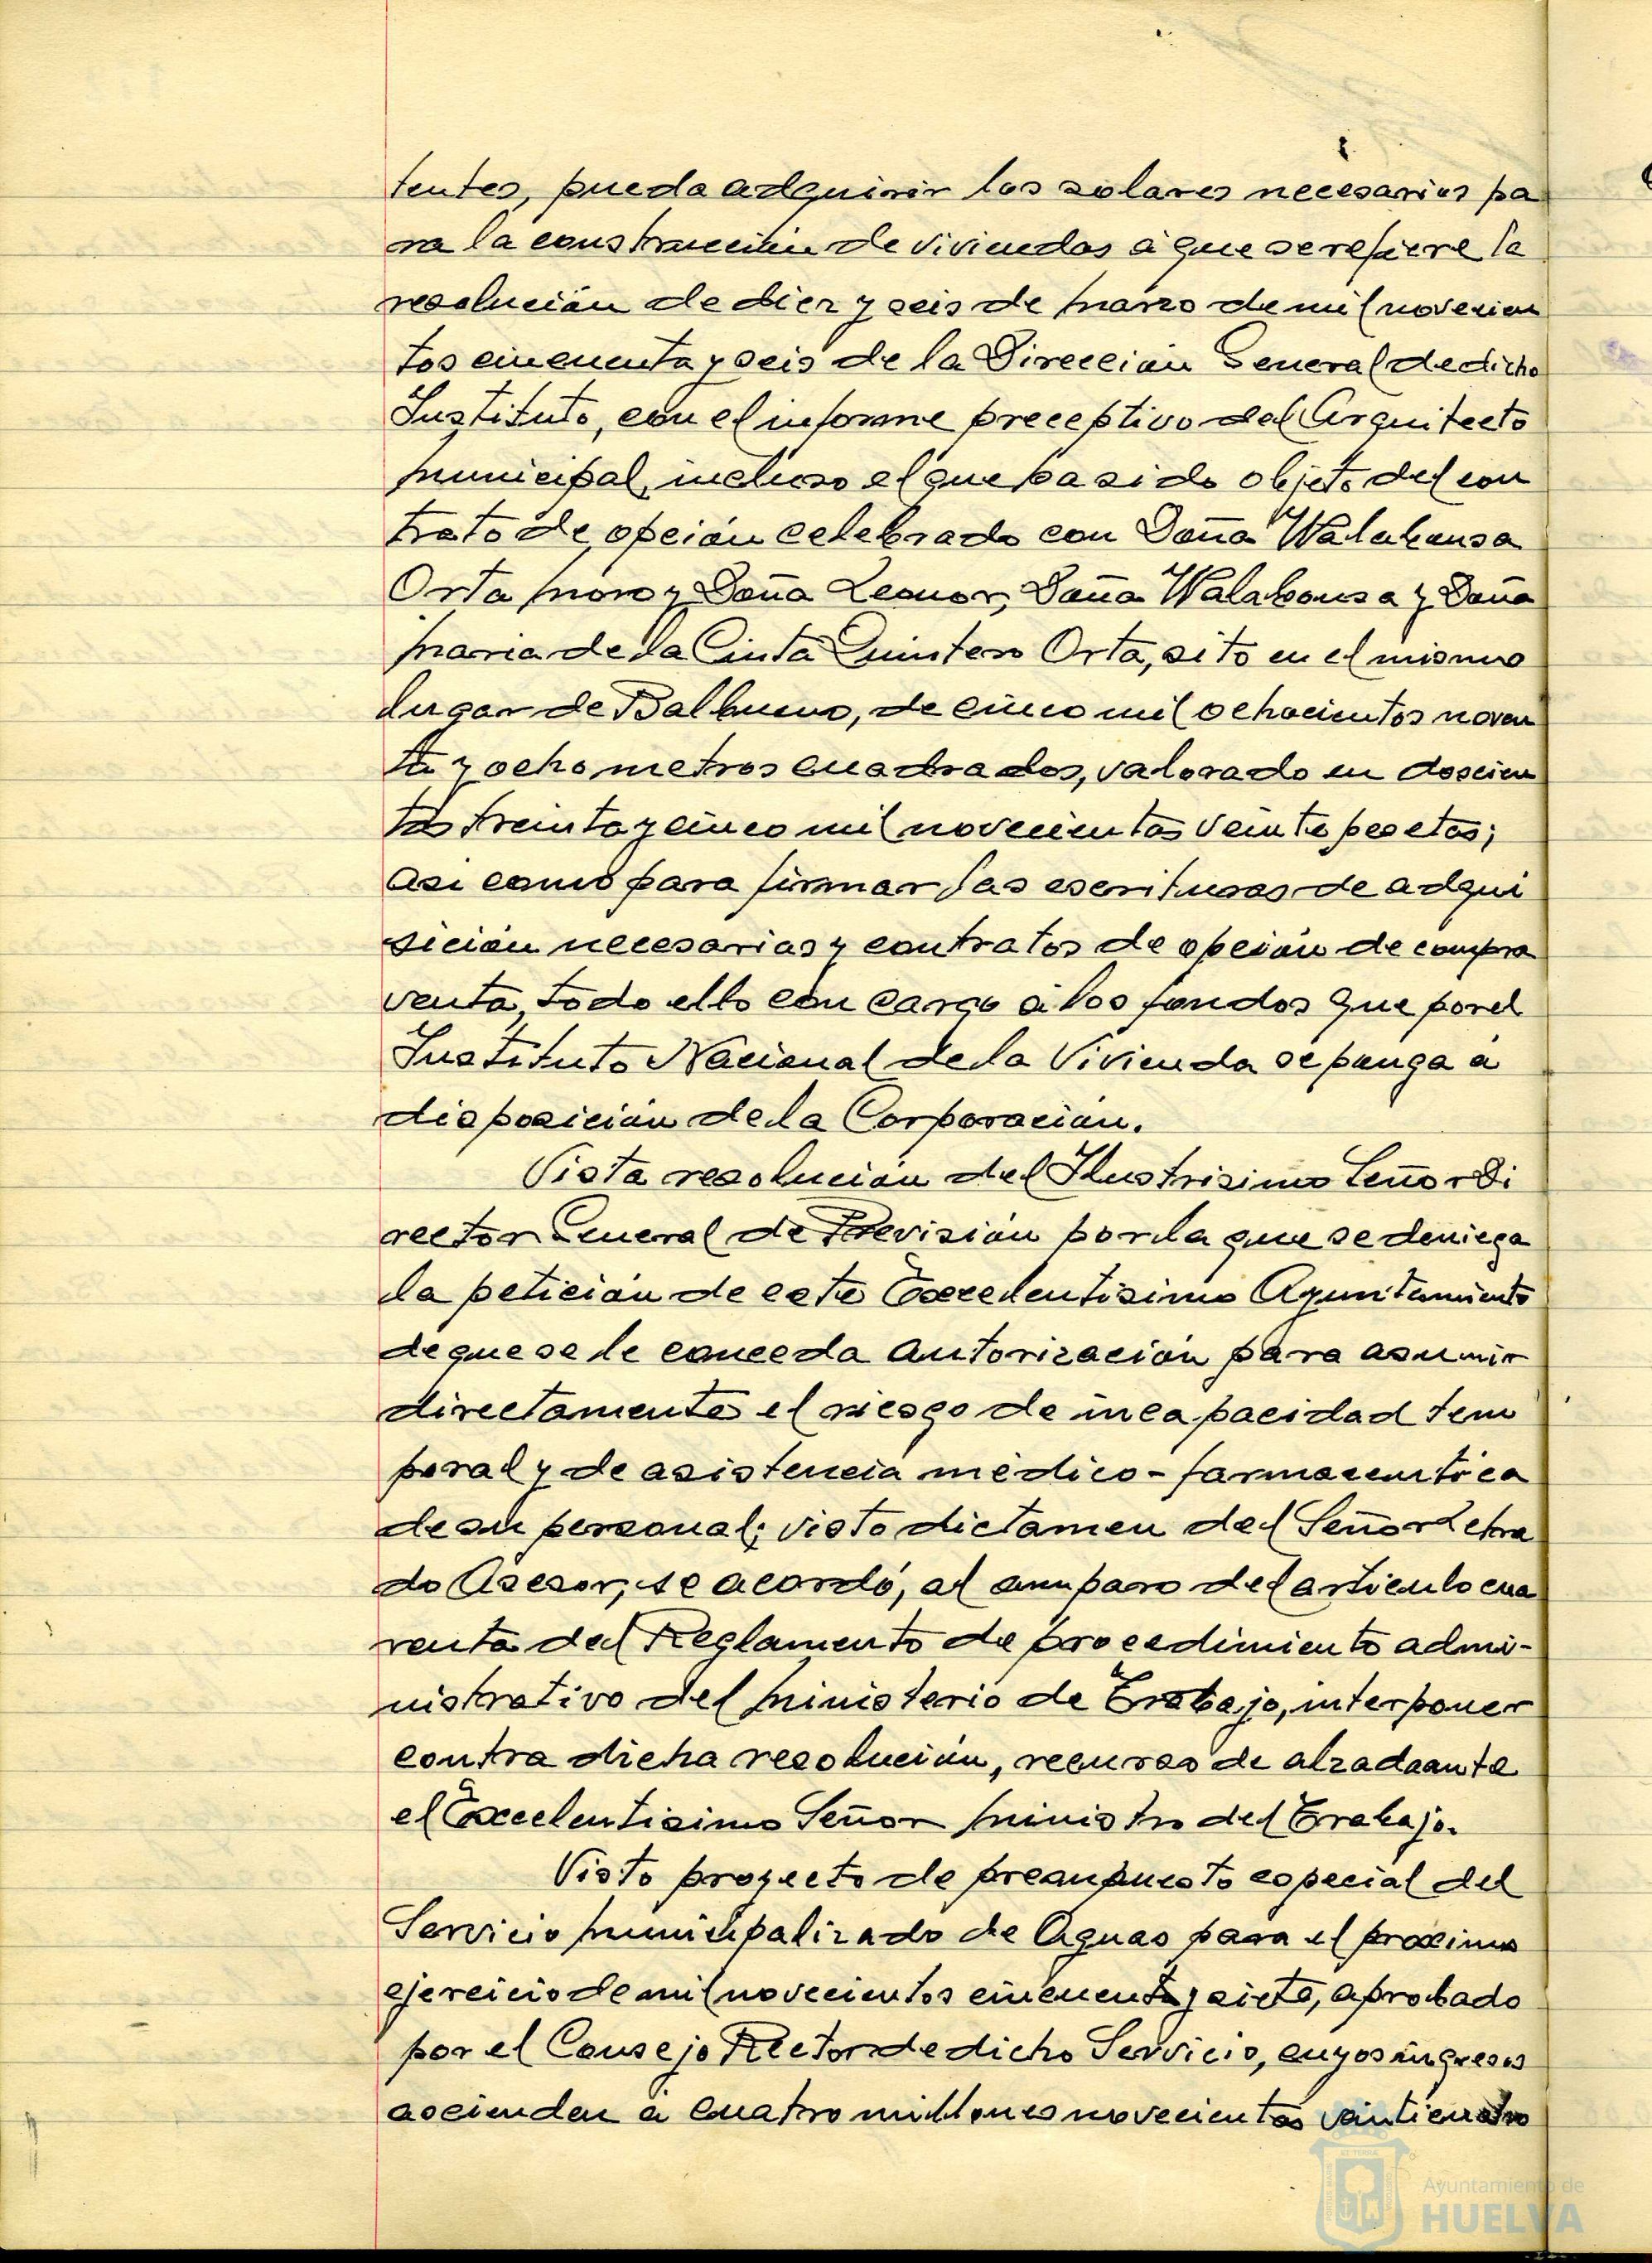 tentes, pueda adquirir los solares necesarios pa
ra la construcción de viviendas á que se refiere la
resolución de diez y seis de marzo de mil novecien
tos cincuenta y seis de la Dirección General de dicho
Instituto, con el informe preceptivo del Arquitecto
municipal, incluso el que ha sido objeto del con
trato de opción celebrado con Doña Walabonsa
Orta moro y Doña Leonor, Doña Walabonsa y Doña
maria de la Cinta Quintero Orta, sito en el mismo
lugar de Balbueno, de cinco mil ochocientos noven
ta y ocho metros cuadrados, valorado en doscien
tas treinta y cinco mil novecientas veinte pesetas;
asi como para firmar las escrituras de adqui
sición necesarias y contratos de opción de compra
venta, todo ello con cargo á los fondos que por el
Instituto Nacional de la Vivienda se ponga á
disposición de la Corporación.
Vista resolución del Ilustrisimo Señor Di
rector General de Previsión por la que se deniega
la petición de este Excelentisimo Ayuntamiento
de que se le conceda autorización para asumir
directamente el riesgo de incapacidad tem
poral y de asistencia médico-farmaceutica
de su personal; visto dictamen del Señor Letra
do Asesor, se acordó, al amparo del articulo cua
renta del Reglamento de procedimiento admi-
nistrativo del ministerio de Trabajo, interponer
contra dicha resolución, recurso de alzada ante
el Excelentisimo Señor ministro del Trabajo.
Visto proyecto de presupuesto especial del
Servicio municipalizado de Aguas para el proximo
ejercicio de mil novecientos cincuenta y siete, aprobado
por el Consejo Rector de dicho Servicio, cuyos ingresos
ascienden á cuatro millones novecientas veinticuatro
Ayuntamiento de
HUELVA